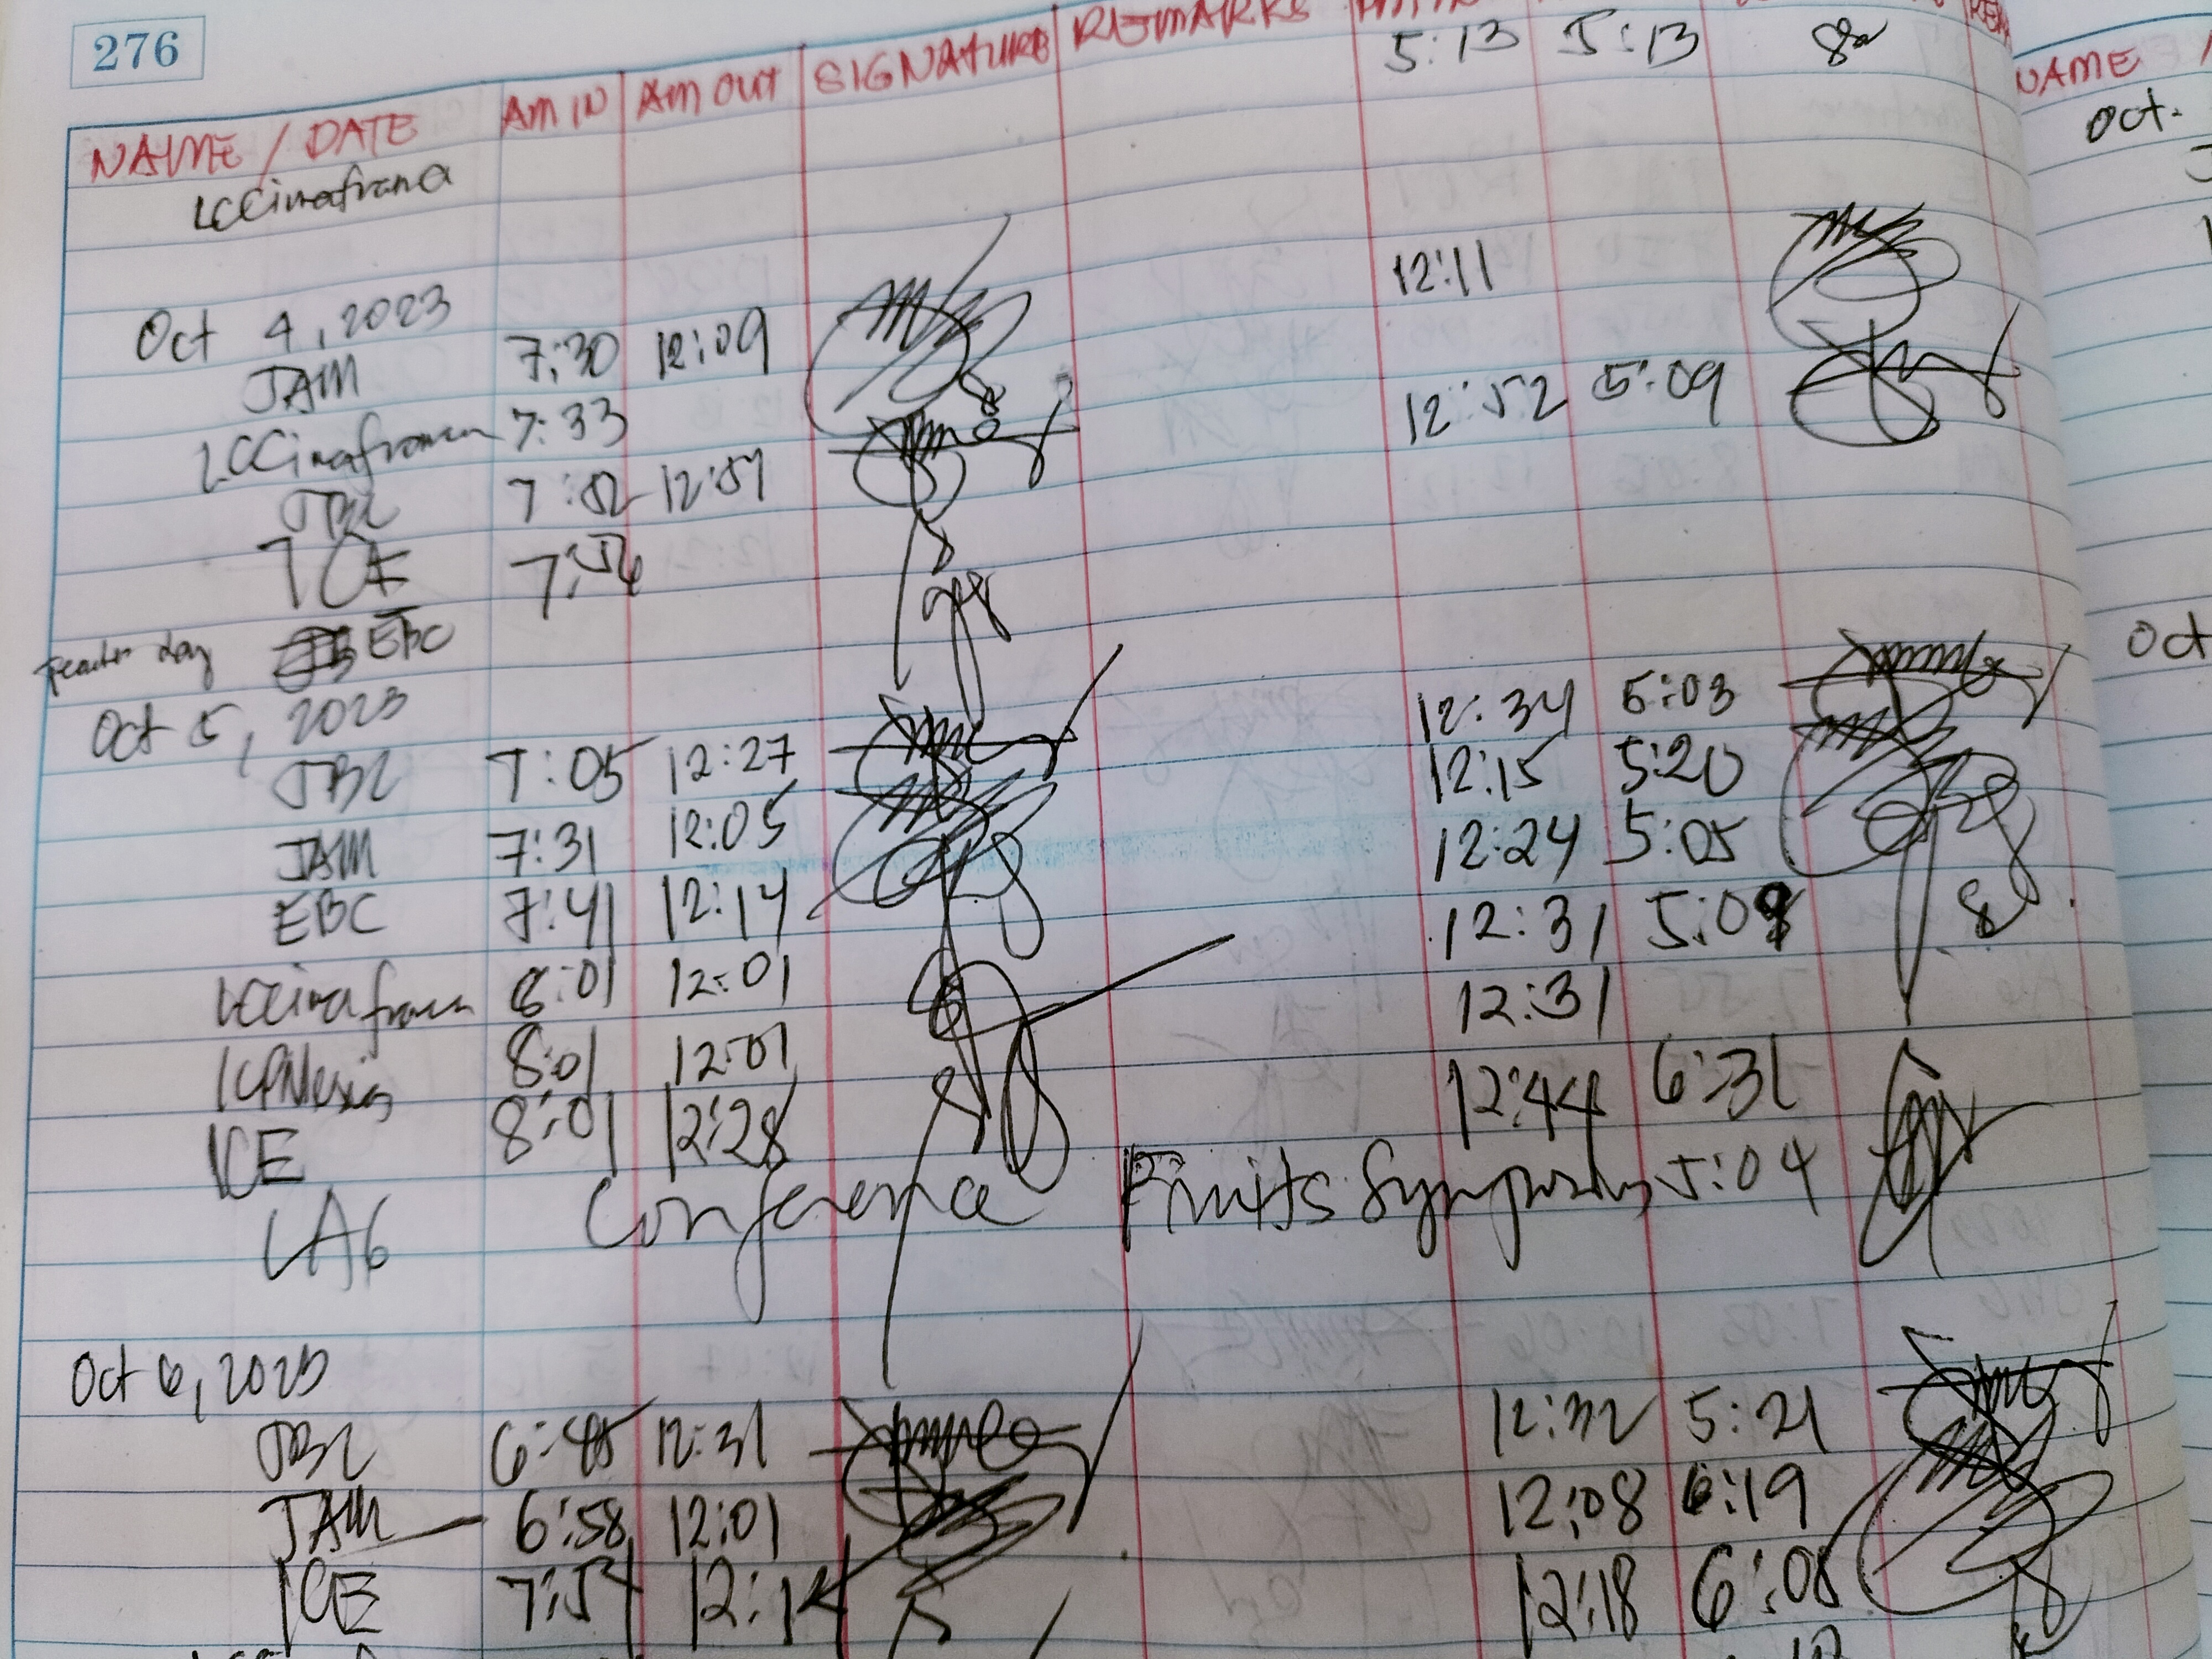 276
NAME / DATE AM IN AM OUT SIGNATURE REMARKS
LCCimafranca 5:13 5:13
Oct 4, 2023
JAM 7:30 12:09 12:11
LCCimafranca 7:33
JBL 7:52 12:51 12:52 5:09
ICE 7:56
EBC
Oct 5, 2023
JBL 7:05 12:27 12:34 5:03
JAM 7:31 12:05 12:15 5:20
EBC 7:41 12:14 12:24 5:05
LCCimafranca 8:01 12:01 12:31 5:09
8:01 12:01 12:31
ICE 8:01 12:28 12:44 6:31
LAG Conference Fruits 5:04
Oct 6, 2023
JBL 6:45 12:31 12:32 5:21
JAM 6:58 12:01 12:08 6:19
ICE 7:54 12:14 12:18 6:08
NAME /
Oct.
Oct